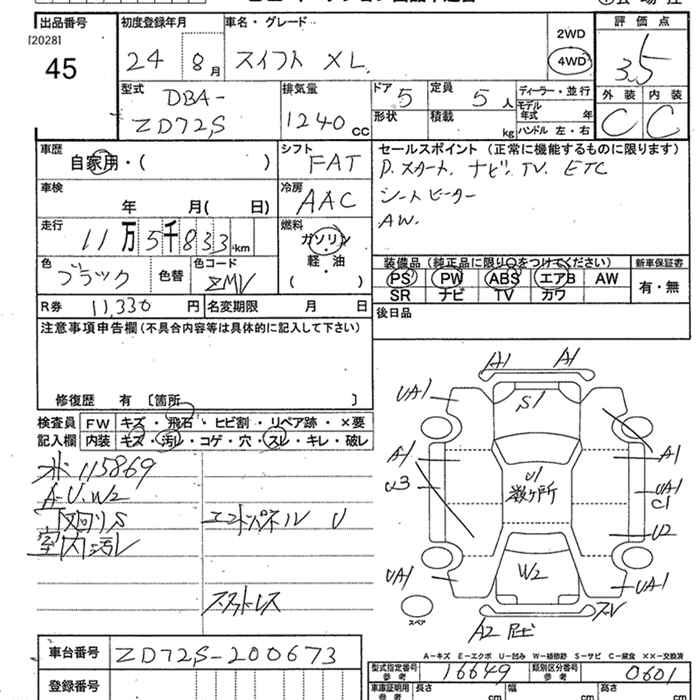 出品番号
[2028]
45
初度登録年月
24 8 月
車名・グレード
スイフト XL
2WD
4WD
評価点
3.5
外装 内装
C C
型式
DBA-
ZD72S
排気量
1240 cc
ドア 5
形状
定員 5 人
積載 kg
ディーラー・並行
モデル年式 年
ハンドル 左・右
車歴
自家用・( )
シフト
FAT
セールスポイント (正常に機能するものに限ります)
P.スタート. ナビ. TV. ETC
シートヒーター
AW.
車検
年 月( 日)
冷房
AAC
走行
11万5千833km
燃料
ガソリン
軽・油
( )
色
ブラック
色替
色コード
ZMV
装備品 (純正品に限り○をつけてください)
PS PW ABS エアB AW
SR ナビ TV カワ
新車保証書
有・無
R券 11,330 円
名変期限 月 日
後日品
注意事項申告欄(不具合内容等は具体的に記入して下さい)
修復歴 有 〔箇所 〕
検査員
記入欄
FW キズ・飛石・ヒビ割・リペア跡・×要
内装 キズ・汚レ・コゲ・穴・スレ・キレ・破レ
※115869
A・U・W2
下廻りS
エンドパネル U
室内汚レ
スストレス
A1 A1
UA1
S1
A1
U3
U1
数ヶ所
A1
UA1
C1
U2
UA1
W2
UA1
スペア
A2
A-キズ E-エクボ U-凹み W-補修跡 S-サビ C-腐食 ××-交換済
車台番号 ZD72S-200673
登録番号
型式指定番号
参考
16649
類別区分番号
参考
0601
車庫証明用
参考
長さ cm
幅 cm
高さ cm